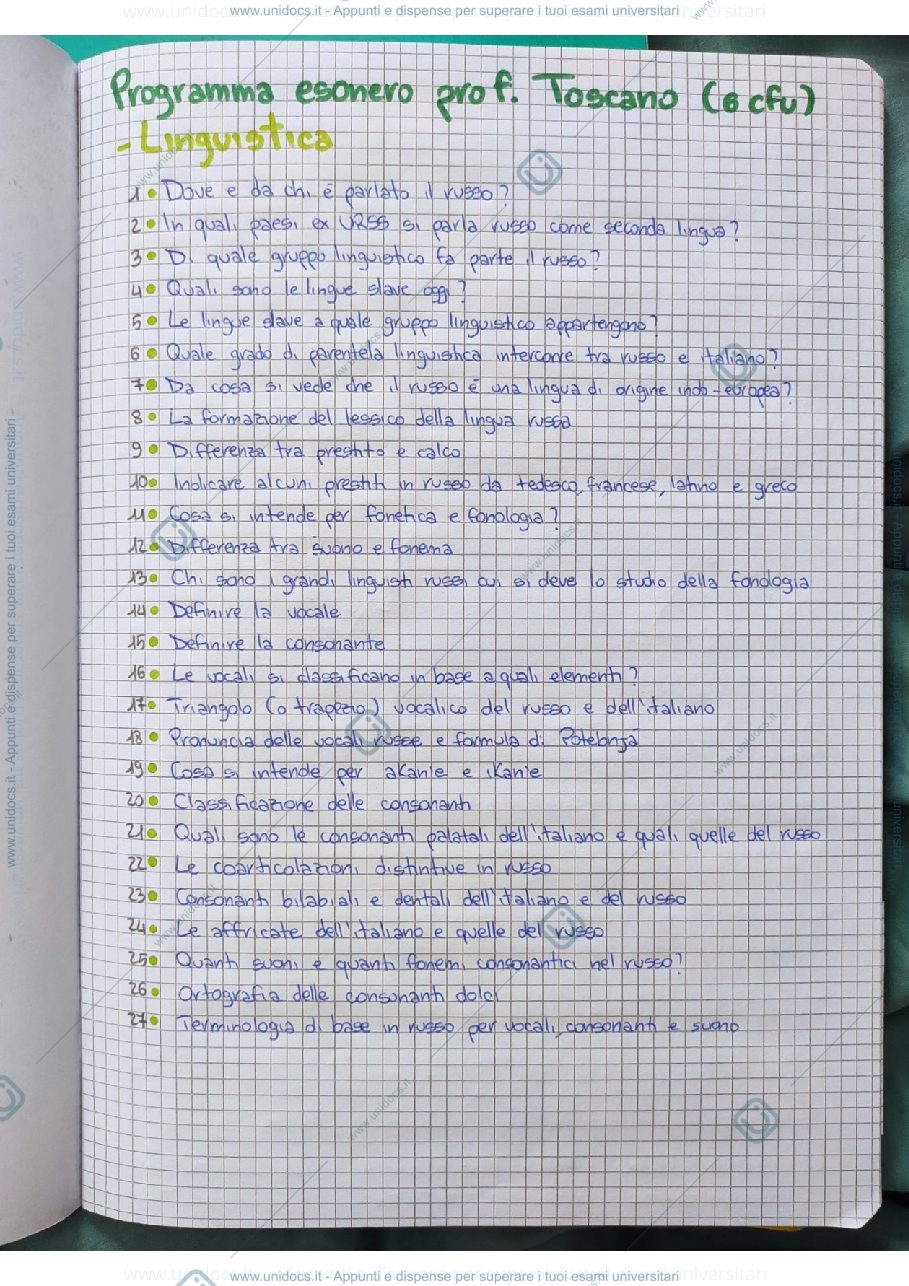 www.unidocs.it - Appunti e dispense per superare i tuoi esami universitari
Programma esonero prof. Toscano (6 cfu)
- Linguistica
1 • Dove e da chi è parlato il russo?
2 • In quali paesi ex URSS si parla russo come seconda lingua?
3 • Di quale gruppo linguistico fa parte il russo?
4 • Quali sono le lingue slave oggi?
5 • Le lingue slave a quale gruppo linguistico appartengono?
6 • Quale grado di parentela linguistica intercorre tra russo e italiano?
7 • Da cosa si vede che il russo è una lingua di origine indo-europea?
8 • La formazione del lessico della lingua russa
9 • Differenza tra prestito e calco
10 • Indicare alcuni prestiti in russo da tedesco, francese, latino e greco
11 • Cosa si intende per fonetica e fonologia?
12 • Differenza tra suono e fonema
13 • Chi sono i grandi linguisti russi cui si deve lo studio della fonologia
14 • Definire la vocale
15 • Definire la consonante
16 • Le vocali si classificano in base a quali elementi?
17 • Triangolo (o trapezio) vocalico del russo e dell'italiano
18 • Pronuncia delle vocali russe e formula di Potebnja
19 • Cosa si intende per akanie e ikanie
20 • Classificazione delle consonanti
21 • Quali sono le consonanti palatali dell'italiano e quali quelle del russo
22 • Le coarticolazioni distintive in russo
23 • Consonanti bilabiali e dentali dell'italiano e del russo
24 • Le affricate dell'italiano e quelle del russo
25 • Quanti suoni e quanti fonemi consonantici nel russo?
26 • Ortografia delle consonanti dolci
27 • Terminologia di base in russo per vocali, consonanti e suono
www.unidocs.it - Appunti e dispense per superare i tuoi esami universitari